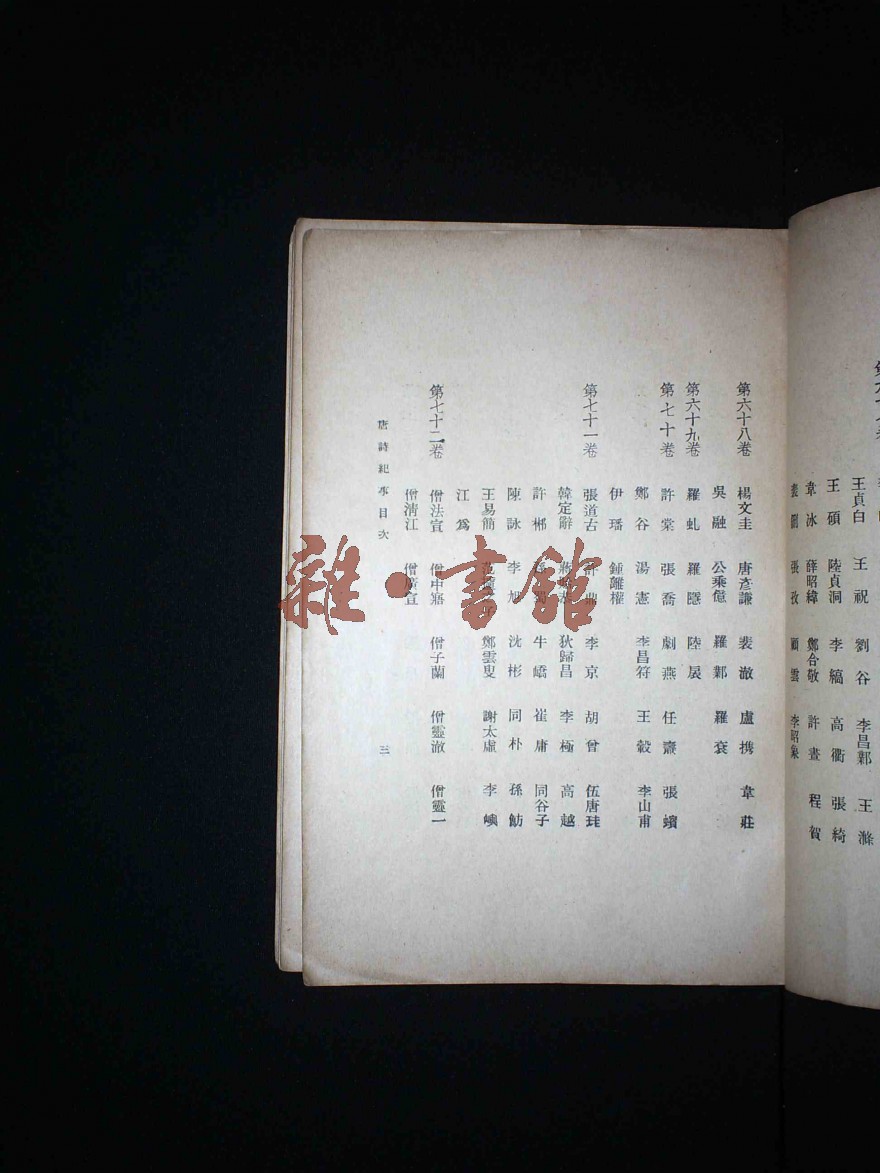 王貞白 王祝 劉谷 李昌鄴 王滌
王碩 陸貞洞 李縞 高衢 張綺
韋冰 薛昭緯 鄭合敬 許晝 程賀
張孜 顧雲 李昭象
第六十八卷 楊文圭 唐彥謙 裴澈 盧携 韋莊
吳融 公乘億 羅鄴 羅袞
第六十九卷 羅虬 羅隱 陸扆
第七十卷 許棠 張喬 劇燕 任濤 張蠙
鄭谷 湯憲 李昌符 王轂 李山甫
伊璠 鍾離權
第七十一卷 張道古 許鼎 李京 胡曾 伍唐珪
韓定辭 狄歸昌 李極 高越
許郴 牛嶠 崔庸 同谷子
陳詠 李旭 沈彬 同朴 孫魴
王易簡 鄭雲叟 謝太虛 李嶼
江為
第七十二卷 僧法宣 僧中寤 僧子蘭 僧靈澈 僧靈一
僧淸江 僧廣宣
唐詩紀事目次 三
雜·書館